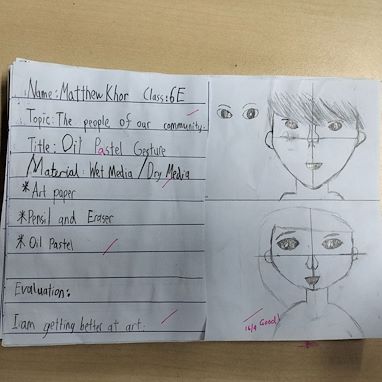 Name: Matthew Khor Class: 6E
Topic: The people of our community.
Title: Oil Pastel Gesture
Material: Wet Media / Dry Media
* Art paper
* Pensil and Eraser
* Oil Pastel
Evaluation:
I am getting better at art.
16/9 Good